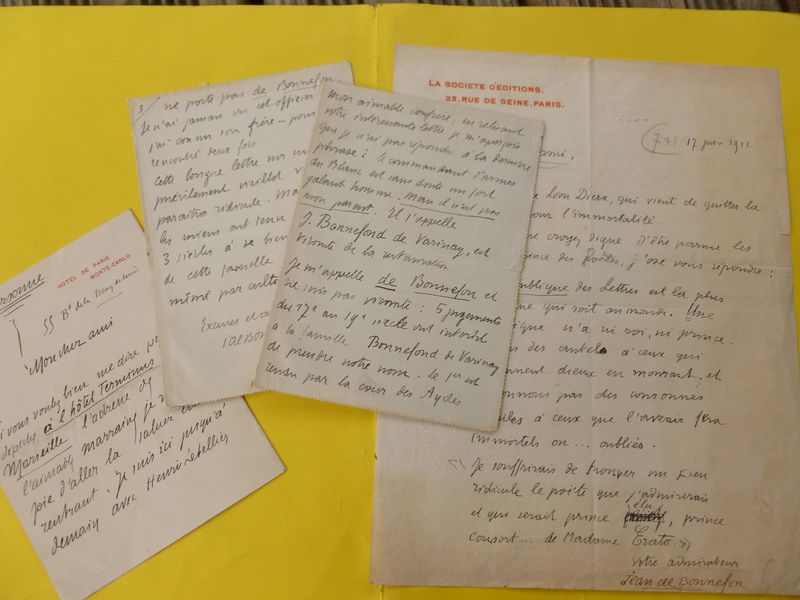 HOTEL DE PARIS
MONTE-CARLO
55 Bd de la
Mon cher ami
vous voulez bien me dire
à l'hôtel Terminus
Marseille l'adresse de
l'aimable marraine je
joie d'aller la saluer en
rentrant. Je suis ici jusqu'à
demain avec Henri Letellier
3/ ne porte pas de Bonnefon
Je n'ai jamais vu cet officier
j'ai connu son frère – pour
rencontré deux fois
cette longue lettre
puérilement vieillot
paraîtra ridicule. Ma
les miens ont tenu
3 siècles à se bien
de cette famille
même par culte
Excuses et
Mon aimable confrère, en relisant
votre intéressante lettre je m'aperçois
que je n'ai pas répondu à la dernière
phrase : le commandant d'armes
du Blanc est sans doute un fort
galant homme. Mais il n'est pas
mon parent. Il s'appelle
J. Bonnefond de Varinay, est
vicomte de la restauration
Je m'appelle de Bonnefon et
ne suis pas vicomte : 5 jugements
du 17e au 19e siècle ont interdit
à la famille Bonnefond de Varinay
de prendre notre nom. Le 1er est
rendu par la cour des Aydes
LA SOCIÉTÉ D'ÉDITIONS.
23, RUE DE SEINE, PARIS.
17 juin 1912
ami,
Léon Dierx, qui vient de quitter la
pour l'immortalité.
croyez digne d'être parmi les
ince des Poètes, j'ose vous répondre :
ublique des Lettres est la plus
ne qui soit au monde. Une
ique n'a ni roi, ni prince.
s des autels à ceux qui
nnent dieux en mourant, et
onnons pas des couronnes
iles à ceux que l'avenir fera
immortels ou... oubliés.
« Je souffrirais de trouver un peu
ridicule le poëte que j'admirerais
et qui serait prince élu, prince
consort.... de Madame Erato. »
votre admirateur
Jean de Bonnefon